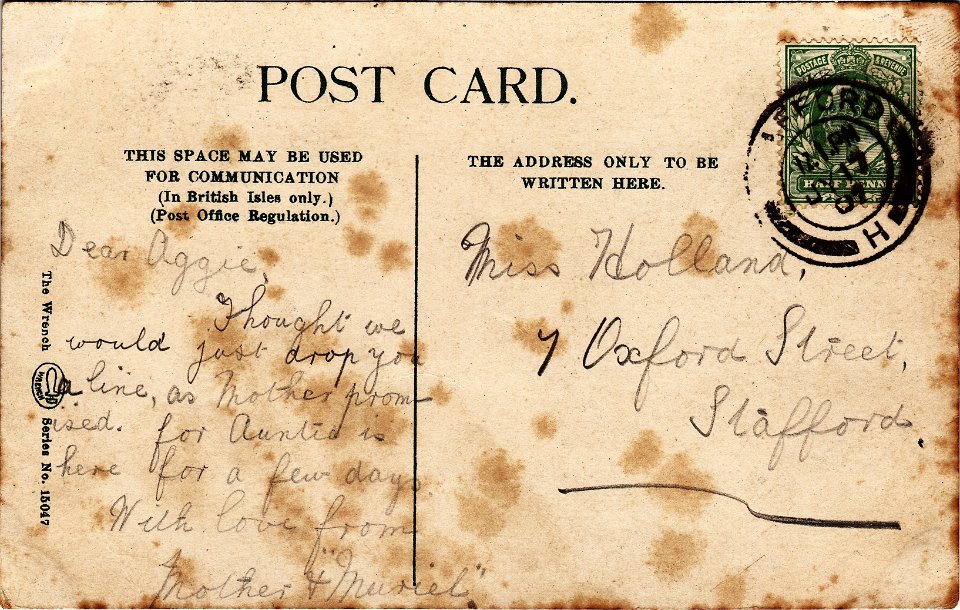 POST CARD.
POSTAGE & REVENUE
HALF PENNY
12 PM
17
07
H
THIS SPACE MAY BE USED
FOR COMMUNICATION
(In British Isles only.)
(Post Office Regulation.)
THE ADDRESS ONLY TO BE
WRITTEN HERE.
The Wrench Series No. 15047
Dear Aggie,
Thought we
would just drop you
a line, as Mother prom-
ised. for Auntie is
here for a few days
With love from
Mother & "Muriel"
Miss Holland,
7 Oxford Street,
Stafford.